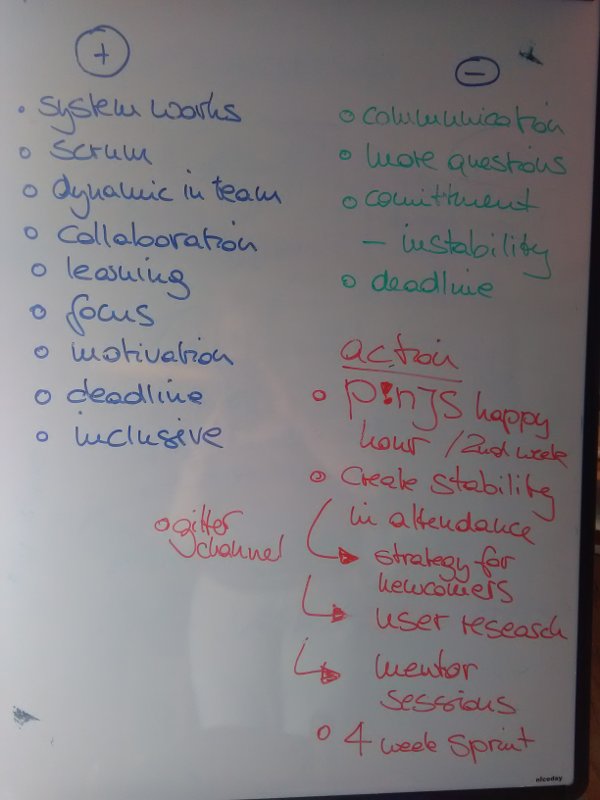 +
• system works
o scrum
o dynamic in team
o collaboration
o learning
o focus
o motivation
o deadline
o inclusive
−
o communication
o more questions
o comittment
– instability
o deadline
action
o P!nJS happy
hour /2nd week
o Create stability
in attendance
strategy for
newcomers
user research
mentor
sessions
o 4 week sprint
o gitter
channel
niceday